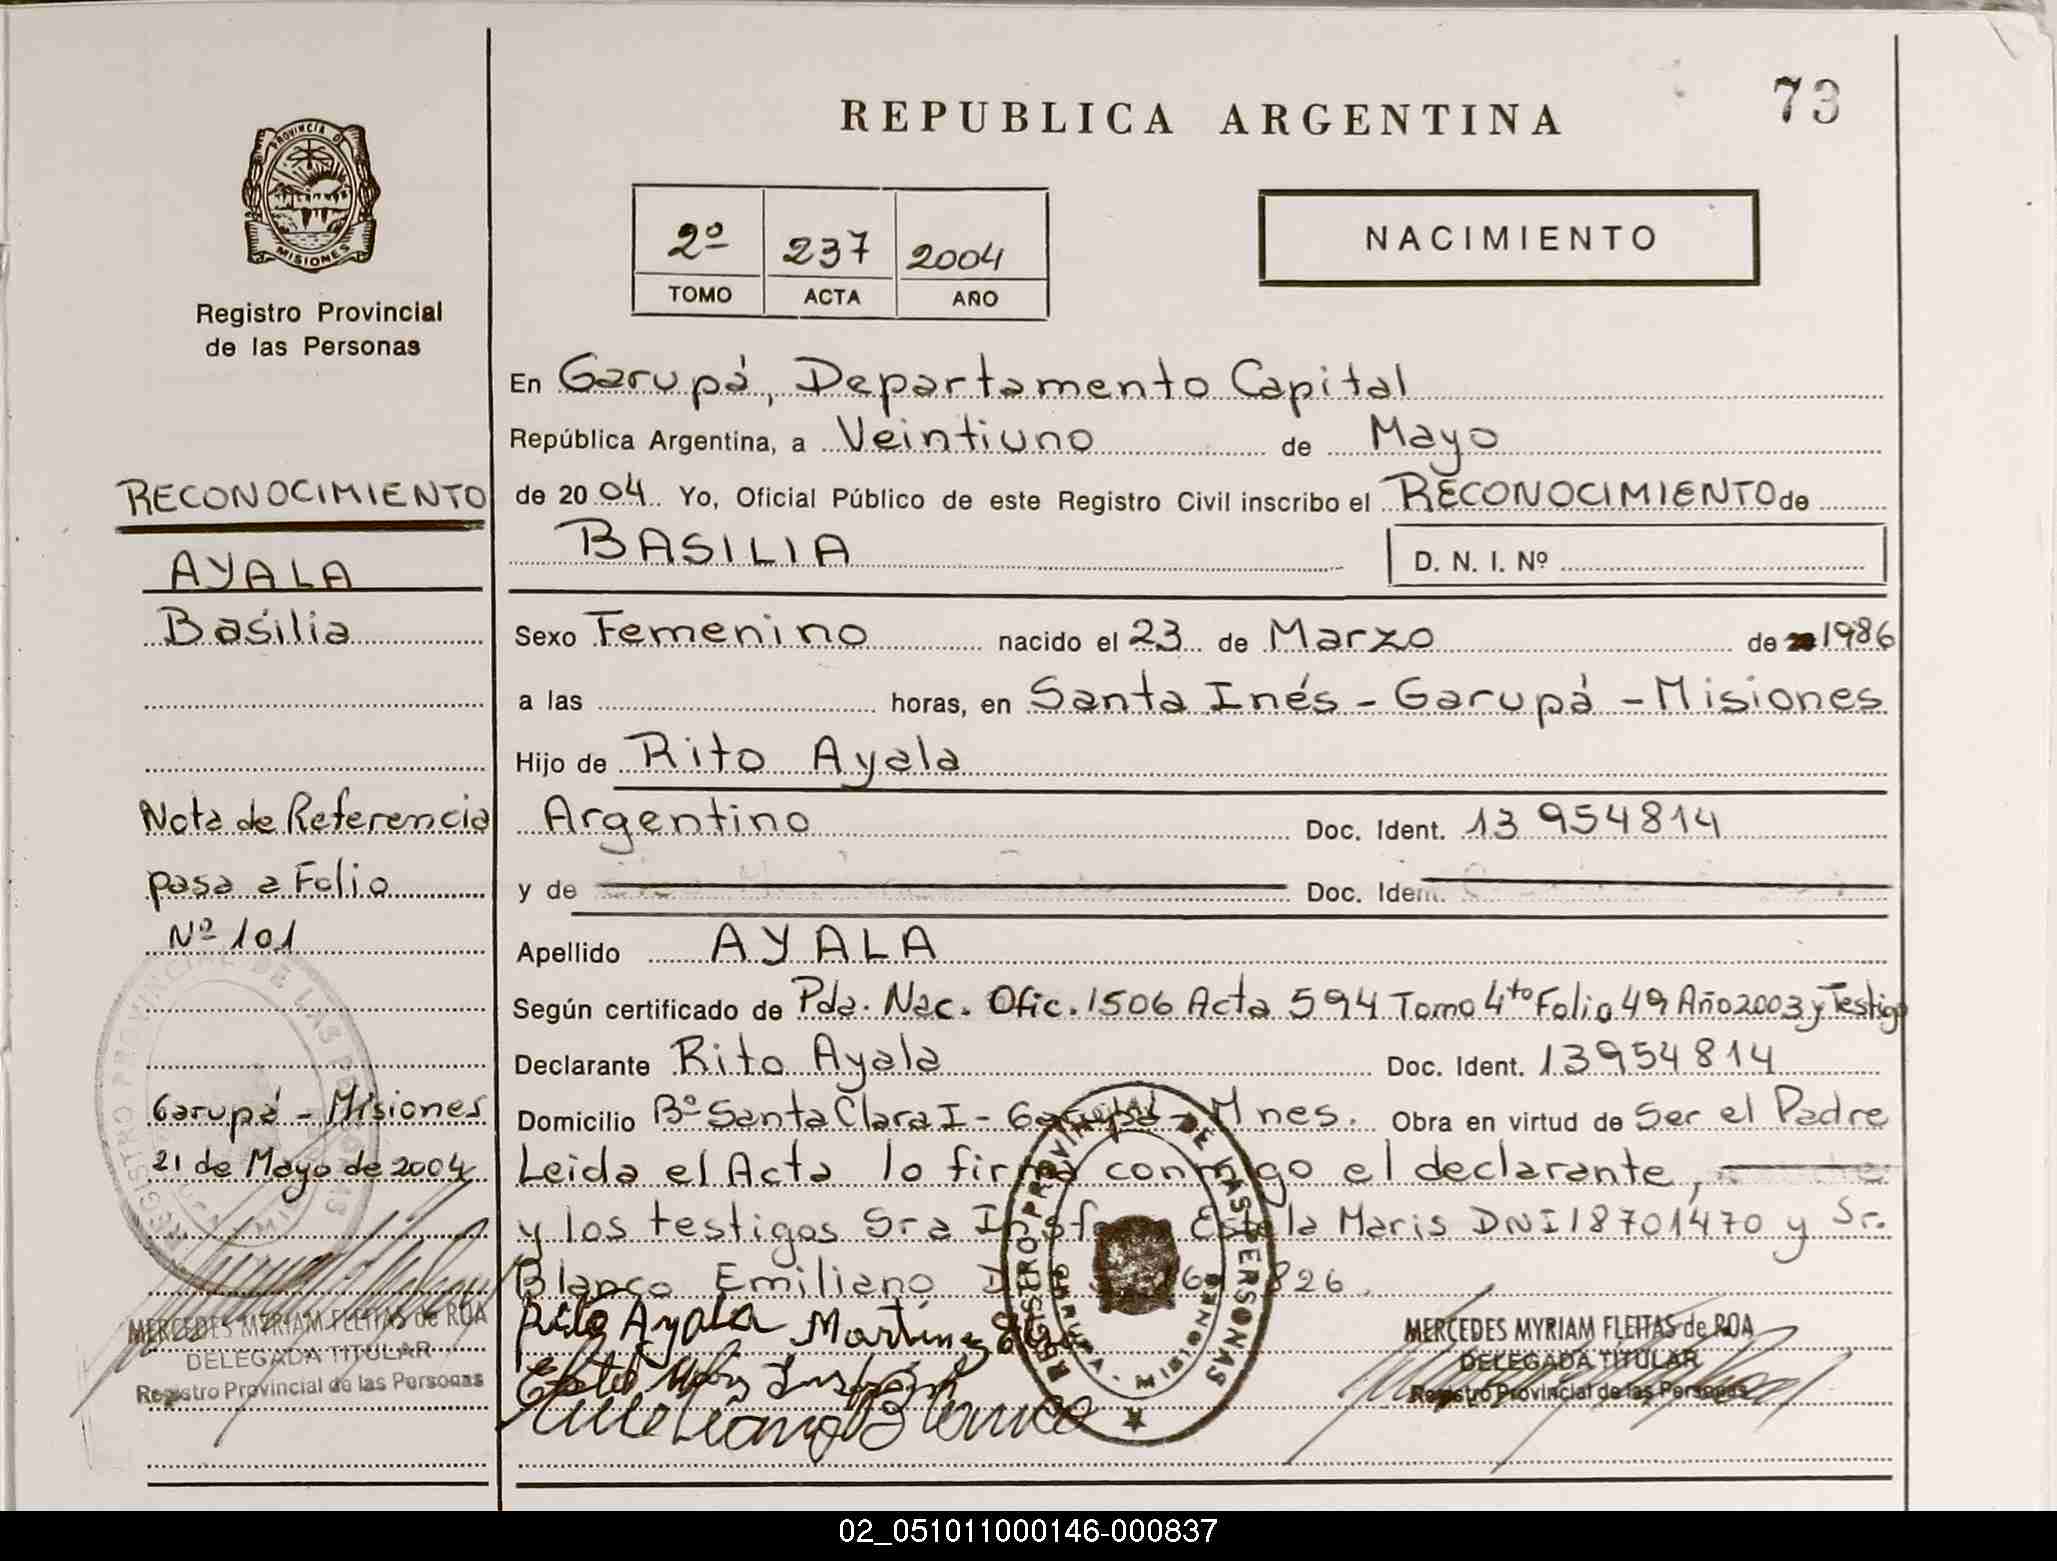 REPUBLICA ARGENTINA
73
PROVINCIA DE
MISIONES
Registro Provincial
de las Personas
2º 237 2004
TOMO ACTA AÑO
NACIMIENTO
RECONOCIMIENTO
AYALA
Basilia
Nota de Referencia
pasa a Folio
Nº 101
Garupá - Misiones
21 de Mayo de 2004
MERCEDES MYRIAM FLEITAS de ROA
DELEGADA TITULAR
Registro Provincial de las Personas
En Garupá, Departamento Capital
República Argentina, a Veintiuno de Mayo
de 20 04 Yo, Oficial Público de este Registro Civil inscribo el RECONOCIMIENTO de
BASILIA D. N. I. Nº
Sexo Femenino nacido el 23 de Marzo de 1986
a las horas, en Santa Inés - Garupá - Misiones
Hijo de Rito Ayala
Argentino Doc. Ident. 13 954814
y de Doc. Ident.
Apellido AYALA
Según certificado de Pda. Nac. Ofic. 1506 Acta 594 Tomo 4to Folio 49 Año 2003 y Testigo
Declarante Rito Ayala Doc. Ident. 13954814
Domicilio Bº Santa Clara I - Garupá - Mnes. Obra en virtud de Ser el Padre
Leida el Acta lo firma conmigo el declarante,
y los testigos Sra Estela Maris DNI 18701470 y Sr.
Blanco Emiliano 826
Rito Ayala Martinez
Emiliano Blanco
REGISTRO PROVINCIAL DE LAS PERSONAS
GARUPA MISIONES
MERCEDES MYRIAM FLEITAS de ROA
DELEGADA TITULAR
Registro Provincial de las Personas
02_051011000146-000837